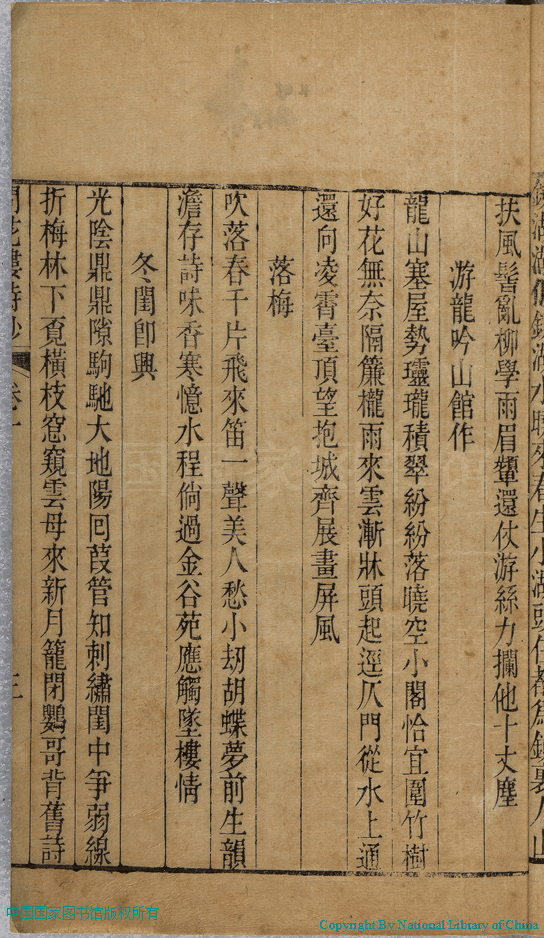 扶風髻亂柳學雨眉顰還仗游絲力攔他十丈塵
游龍吟山館作
龍山塞屋勢瓏瓏積翠紛紛落曉空小閣恰宜圍竹樹
好花無奈隔簾櫳雨來雲漸牀頭起逕仄門從水上通
還向凌霄臺頂望抱城齊展畫屏風
落梅
吹落春千片飛來笛一聲美人愁小刼胡蝶夢前生韻
澹存詩味香寒憶水程倘過金谷苑應觸墜樓情
冬閨卽興
光陰鼎鼎隙駒馳大地陽囘葭管知刺繡閨中爭弱線
折梅林下覔橫枝窓窺雲母來新月籠閉鸚哥背舊詩
花樓詩鈔 卷一
中国国家图书馆版权所有
Copyright By National Library of China